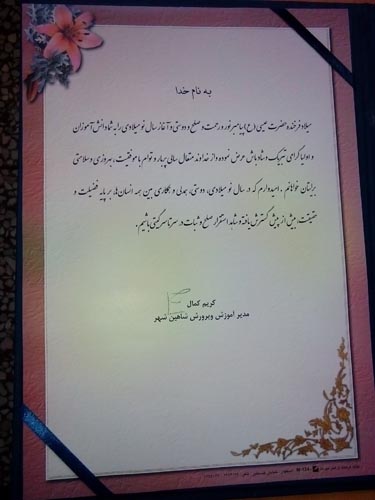 به نام خدا
میلاد فرخنده حضرت عیسی (ع) پیامبر نور و رحمت و صلح و دوستی و آغاز سال نو میلادی را به شما دانش آموزان
و اولیا گرامی تبریک و شادباش عرض نموده و از خداوند متعال سالی پربار و توام با موفقیت، بهروزی و سلامتی
برایتان خواهانم . امیدوارم که در سال نو میلادی، دوستی، همدلی و همکاری بین همه انسان‌ها، بر پایه فضیلت و
حقیقت، بیش از پیش گسترش یافته و شاهد استقرار صلح و ثبات در سرتاسر گیتی باشیم.
کریم کمال
مدیر آموزش وپرورش شاهین شهر